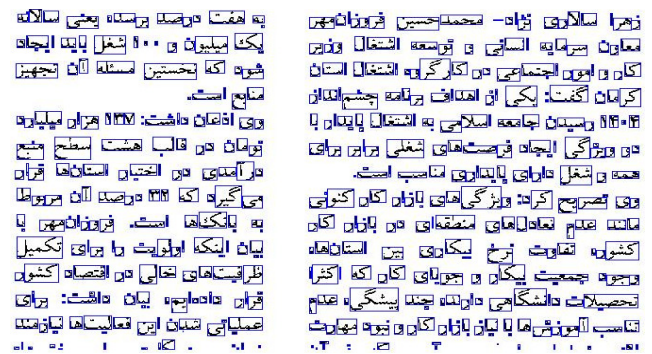 زهرا سالاری نژاد- محمدحسین فروزان‌مهر
معاون سرمایه انسانی و توسعه اشتغال وزیر
کار و امور اجتماعی در کارگروه اشتغال استان
کرمان گفت: یکی از اهداف برنامه چشم‌انداز
۱۴۰۴ رسیدن جامعه اسلامی به اشتغال پایدار با
دو ویژگی ایجاد فرصت‌های شغلی برابر برای
همه و شغل دارای پایداری مناسب است.
وی تصریح کرد: ویژگی‌های بازار کار کنونی
مانند عدم تعادل‌های منطقه‌ای در بازار کار
کشور، تفاوت نرخ بیکاری بین استان‌ها،
وجود جمعیت بیکار و جویای کار که اکثرا
تحصیلات دانشگاهی دارند، چند پیشگی، عدم
تناسب آموزش‌ها با نیاز بازار کار و نبود مهارت
به هفت درصد برسد، یعنی سالانه
یک میلیون و ۱۰۰ شغل باید ایجاد
شود که نخستین مسئله آن تجهیز
منابع است.
وی اذعان داشت: ۱۳۷ هزار میلیارد
تومان در قالب هشت سطح منبع
درآمدی در اختیار استان‌ها قرار
می‌گیرد که ۳۲ درصد آن مربوط
به بانک‌ها است. فروزان‌مهر با
بیان اینکه اولویت را برای تکمیل
ظرفیت‌های خالی در اقتصاد کشور
قرار داده‌ایم، بیان داشت: برای
عملیاتی شدن این فعالیت‌ها نیازمند